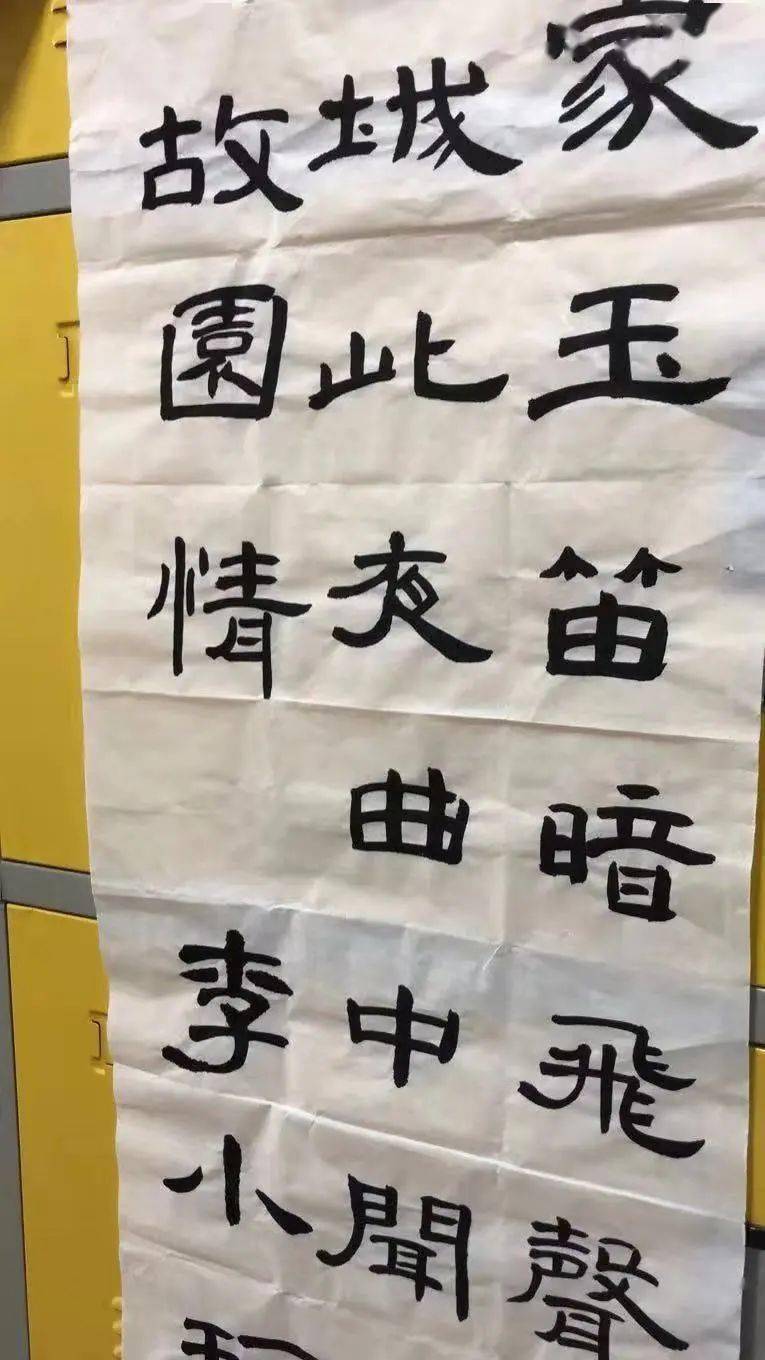 家玉笛暗飛聲
城此夜曲中聞
故園情 李小